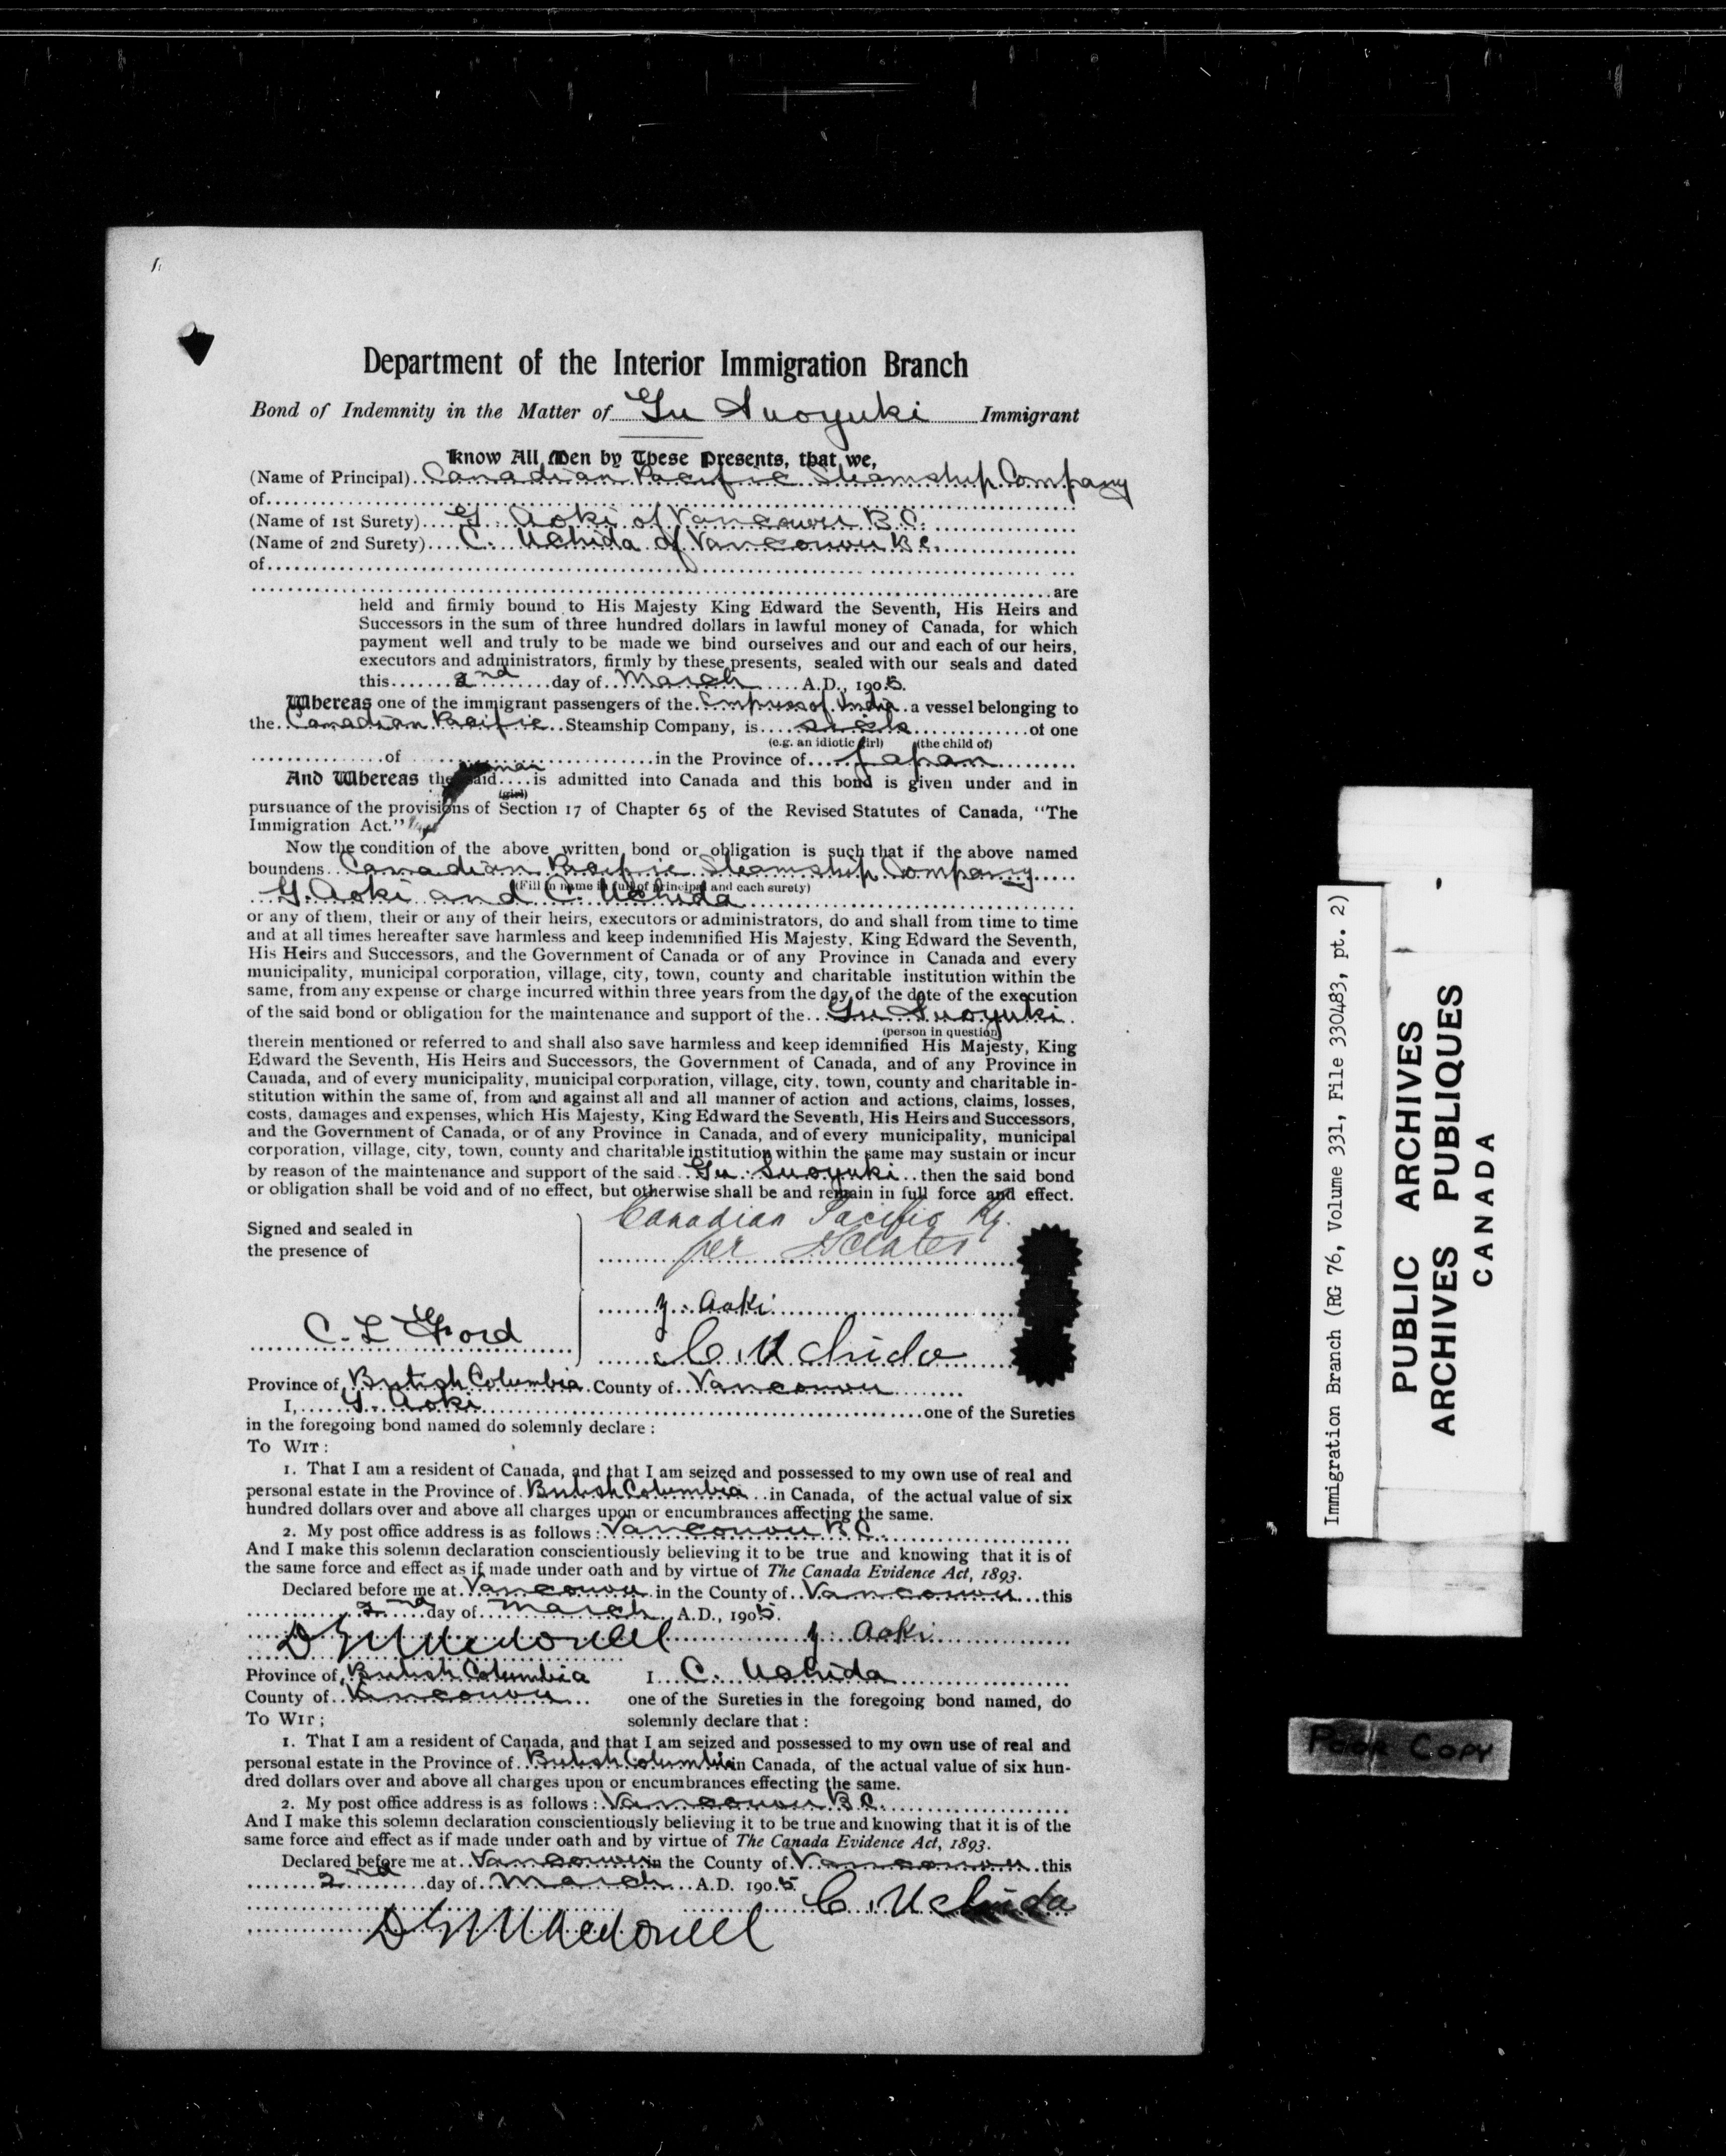 Department of the Interior Immigration Branch
Bond of Indemnity in the Matter of Gu Suoyuki Immigrant
Know All Men by These Presents, that we,
(Name of Principal) Canadian Pacific Steamship Company
of
(Name of 1st Surety) G. Aoki of Vancouver B.C.
(Name of 2nd Surety) C. Uchida of Vancouver B.C.
of
are
held and firmly bound to His Majesty King Edward the Seventh, His Heirs and
Successors in the sum of three hundred dollars in lawful money of Canada, for which
payment well and truly to be made we bind ourselves and our and each of our heirs,
executors and administrators, firmly by these presents, sealed with our seals and dated
this 2nd day of March A.D., 1905.
Whereas one of the immigrant passengers of the Empress of India a vessel belonging to
the Canadian Pacific Steamship Company, is sick of one
(e.g. an idiotic girl) (the child of)
of in the Province of Japan
And Whereas the said man is admitted into Canada and this bond is given under and in
(girl)
pursuance of the provisions of Section 17 of Chapter 65 of the Revised Statutes of Canada, "The
Immigration Act."
Now the condition of the above written bond or obligation is such that if the above named
boundens Canadian Pacific Steamship Company
(Fill in name in full of principal and each surety)
G. Aoki and C. Uchida
or any of them, their or any of their heirs, executors or administrators, do and shall from time to time
and at all times hereafter save harmless and keep indemnified His Majesty, King Edward the Seventh,
His Heirs and Successors, and the Government of Canada or of any Province in Canada and every
municipality, municipal corporation, village, city, town, county and charitable institution within the
same, from any expense or charge incurred within three years from the day of the date of the execution
of the said bond or obligation for the maintenance and support of the Gu Suoyuki
(person in question)
therein mentioned or referred to and shall also save harmless and keep idemnified His Majesty, King
Edward the Seventh, His Heirs and Successors, the Government of Canada, and of any Province in
Canada, and of every municipality, municipal corporation, village, city, town, county and charitable in-
stitution within the same of, from and against all and all manner of action and actions, claims, losses,
costs, damages and expenses, which His Majesty, King Edward the Seventh, His Heirs and Successors,
and the Government of Canada, or of any Province in Canada, and of every municipality, municipal
corporation, village, city, town, county and charitable institution within the same may sustain or incur
by reason of the maintenance and support of the said Gu Suoyuki then the said bond
or obligation shall be void and of no effect, but otherwise shall be and remain in full force and effect.
Signed and sealed in
the presence of
Canadian Pacific Ry.
per
y. Aoki
C. L. Ford
C. Uchida
Province of British Columbia County of Vancouver
I, G. Aoki one of the Sureties
in the foregoing bond named do solemnly declare :
To WIT :
1. That I am a resident of Canada, and that I am seized and possessed to my own use of real and
personal estate in the Province of British Columbia in Canada, of the actual value of six
hundred dollars over and above all charges upon or encumbrances affecting the same.
2. My post office address is as follows : Vancouver B.C.
And I make this solemn declaration conscientiously believing it to be true and knowing that it is of
the same force and effect as if made under oath and by virtue of The Canada Evidence Act, 1893.
Declared before me at Vancouver in the County of Vancouver this
2nd day of March A.D., 1905.
y. Aoki
Province of British Columbia I C. Uchida
County of Vancouver one of the Sureties in the foregoing bond named, do
To WIT ; solemnly declare that :
1. That I am a resident of Canada, and that I am seized and possessed to my own use of real and
personal estate in the Province of British Columbia in Canada, of the actual value of six hun-
dred dollars over and above all charges upon or encumbrances effecting the same.
2. My post office address is as follows : Vancouver B.C.
And I make this solemn declaration conscientiously believing it to be true and knowing that it is of the
same force and effect as if made under oath and by virtue of The Canada Evidence Act, 1893.
Declared before me at Vancouver in the County of Vancouver this
2nd day of March A.D. 1905.
C. Uchida
Immigration Branch (RG 76, Volume 331, File 330483, pt. 2)
PUBLIC ARCHIVES
ARCHIVES PUBLIQUES
CANADA
Poor Copy